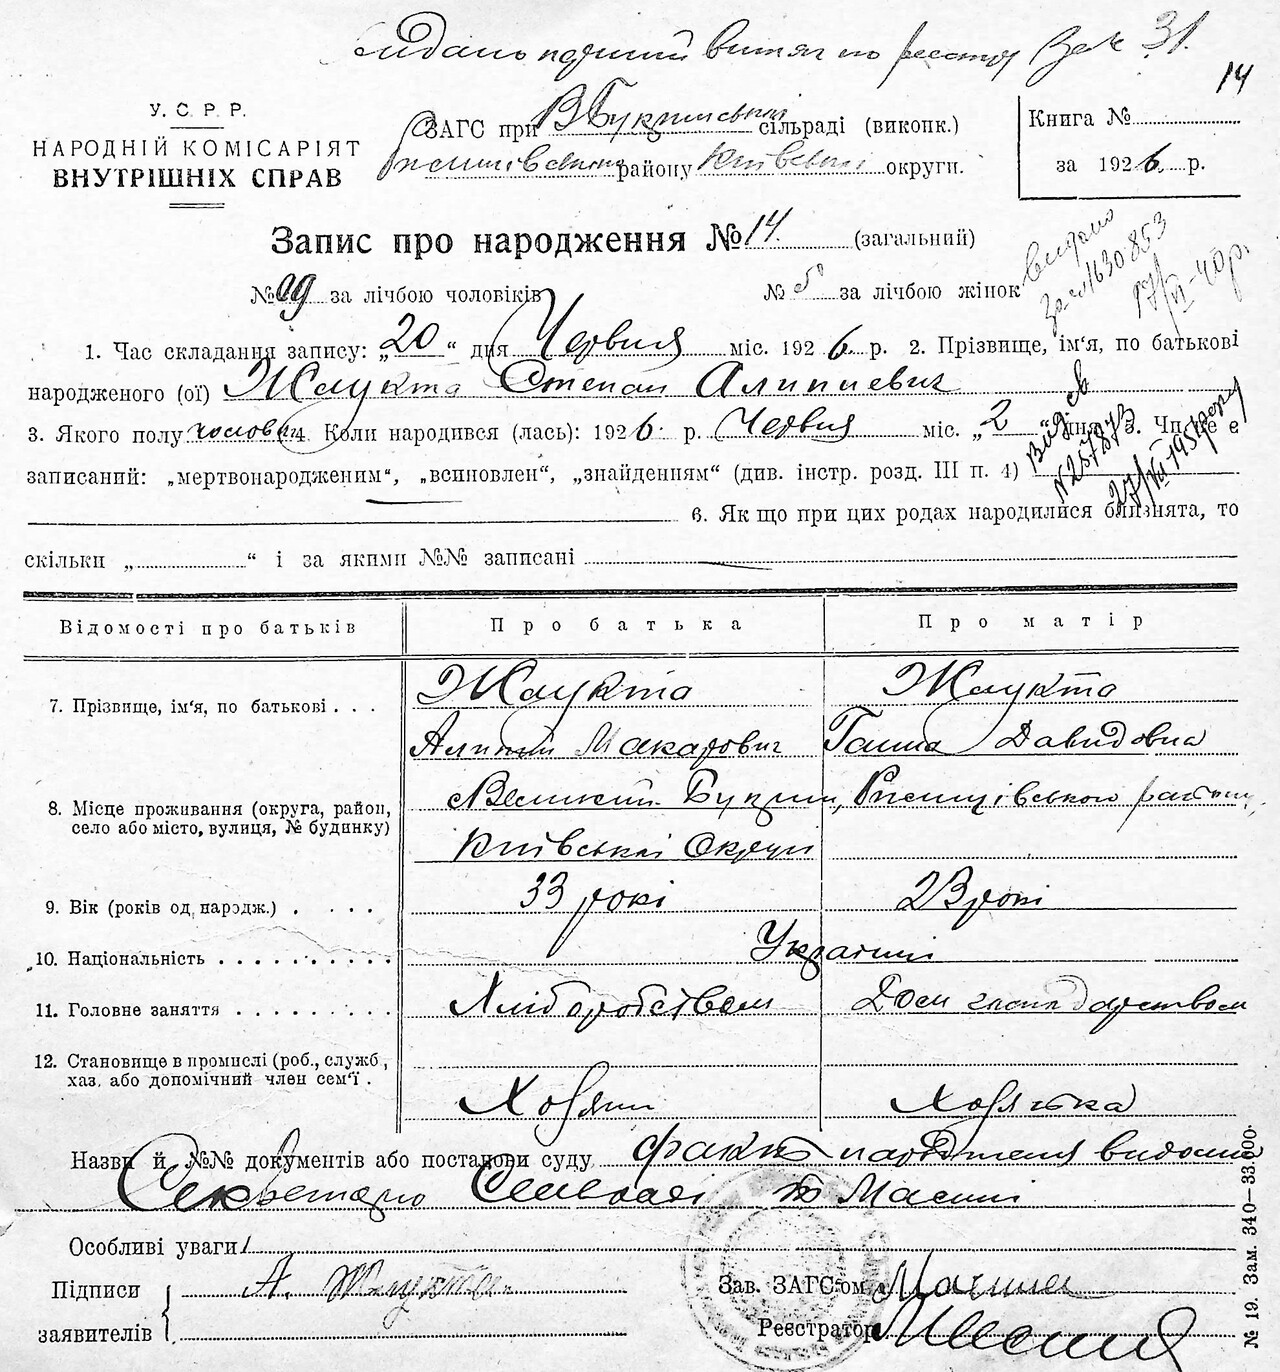 видано перший витяг по реєстру Зак 31.
14
У. С. Р. Р.
НАРОДНІЙ КОМІСАРІЯТ
ВНУТРІШНІХ СПРАВ
ЗАГС при В Букринській сільраді (викопк.)
району Київської округи.
Книга №
за 1926 р.
Запис про народження №14. (загальний)
№ 09 за лічбою чоловіків
№ 5 за лічбою жінок
видано
1630853
17/VI-40р.
1. Час складання запису: „20“ дня Червня міс. 1926. р. 2. Прізвище, ім‘я, по батькові
народженого (ої) Жаукта Степан Алипиевич
3. Якого полу чоловіч 4. Коли народився (лась): 1926. р. Червня міс. „2“ дня 5. Чи не є
записаний: „мертвонародженим“, „всиновлен“, „знайденням“ (див. інстр. розд. III п. 4)
Вид. св
№257873
27/VII 1951
6. Як що при цих родах народилися близнята, то
скільки „ “ і за якими №№ записані
Відомості про батьків Про батька Про матір
7. Прізвище, ім‘я, по батькові . . . Жаукта Жаукта
Алипий Макарович Ганна Давидовна
8. Місце проживання (округа, район,
село або місто, вулиця, № будинку)
Великий Букрин, Ржищівського району,
Київської Округи
9. Вік (років од народж.) . . . . 33 рокі 23 рокі
10. Національність . . . . . . . . . . Українці
11. Головне заняття . . . . . . . . . Хліборобством Дом господарством
12. Становище в промислі (роб., служб,
хаз. або допомічний член сем‘ї .
Хозяин Хозяйка
Назви й №№ документів або постанови суду факт народження видомий
Секретарю Сільради
Особливі уваги
Підписи
заявителів
А. Жаукта
Зав. ЗАГС‘ом
Реєстратор
№ 19. Зам. 340—33.000.